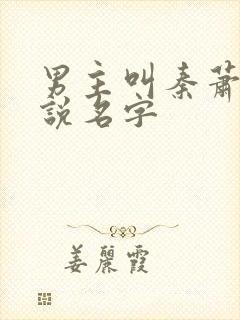 男主叫秦蕭
說名字
姜麗霞